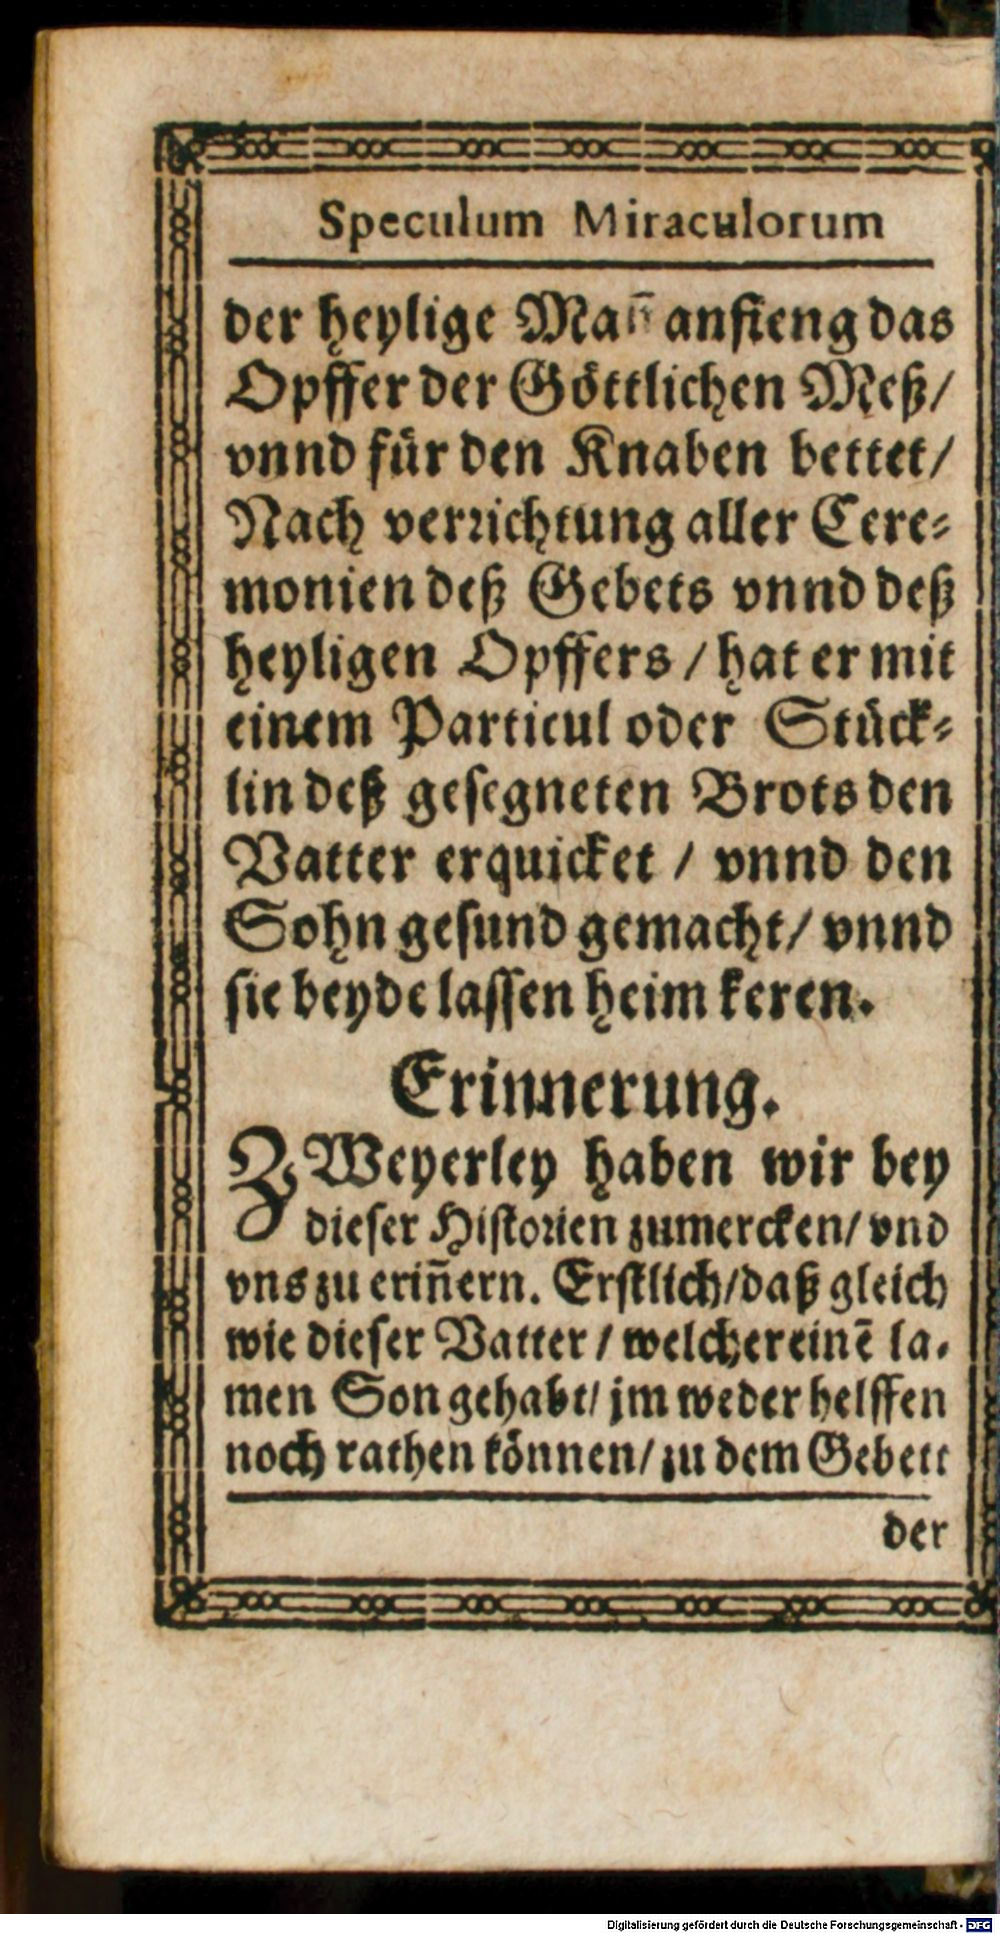 Speculum Miraculorum
der heylige Mañ anfieng das
Opffer der Göttlichen Meß/
vnnd für den Knaben bettet/
Nach verrichtung aller Cere-
monien deß Gebets vnnd deß
heyligen Opffers / hat er mit
einem Particul oder Stück-
lin deß gesegneten Brots den
Vatter erquicket / vnnd den
Sohn gesund gemacht/ vnnd
sie beyde lassen heim keren.
Erinnerung.
ZWeyerley haben wir bey
dieser Historien zumercken/ vnd
vns zu eriñern. Erstlich/daß gleich
wie dieser Vatter / welcher einē la-
men Son gehabt/ jm weder helffen
noch rathen können/ zu dem Gebett
der
Digitalisierung gefördert durch die Deutsche Forschungsgemeinschaft - DFG